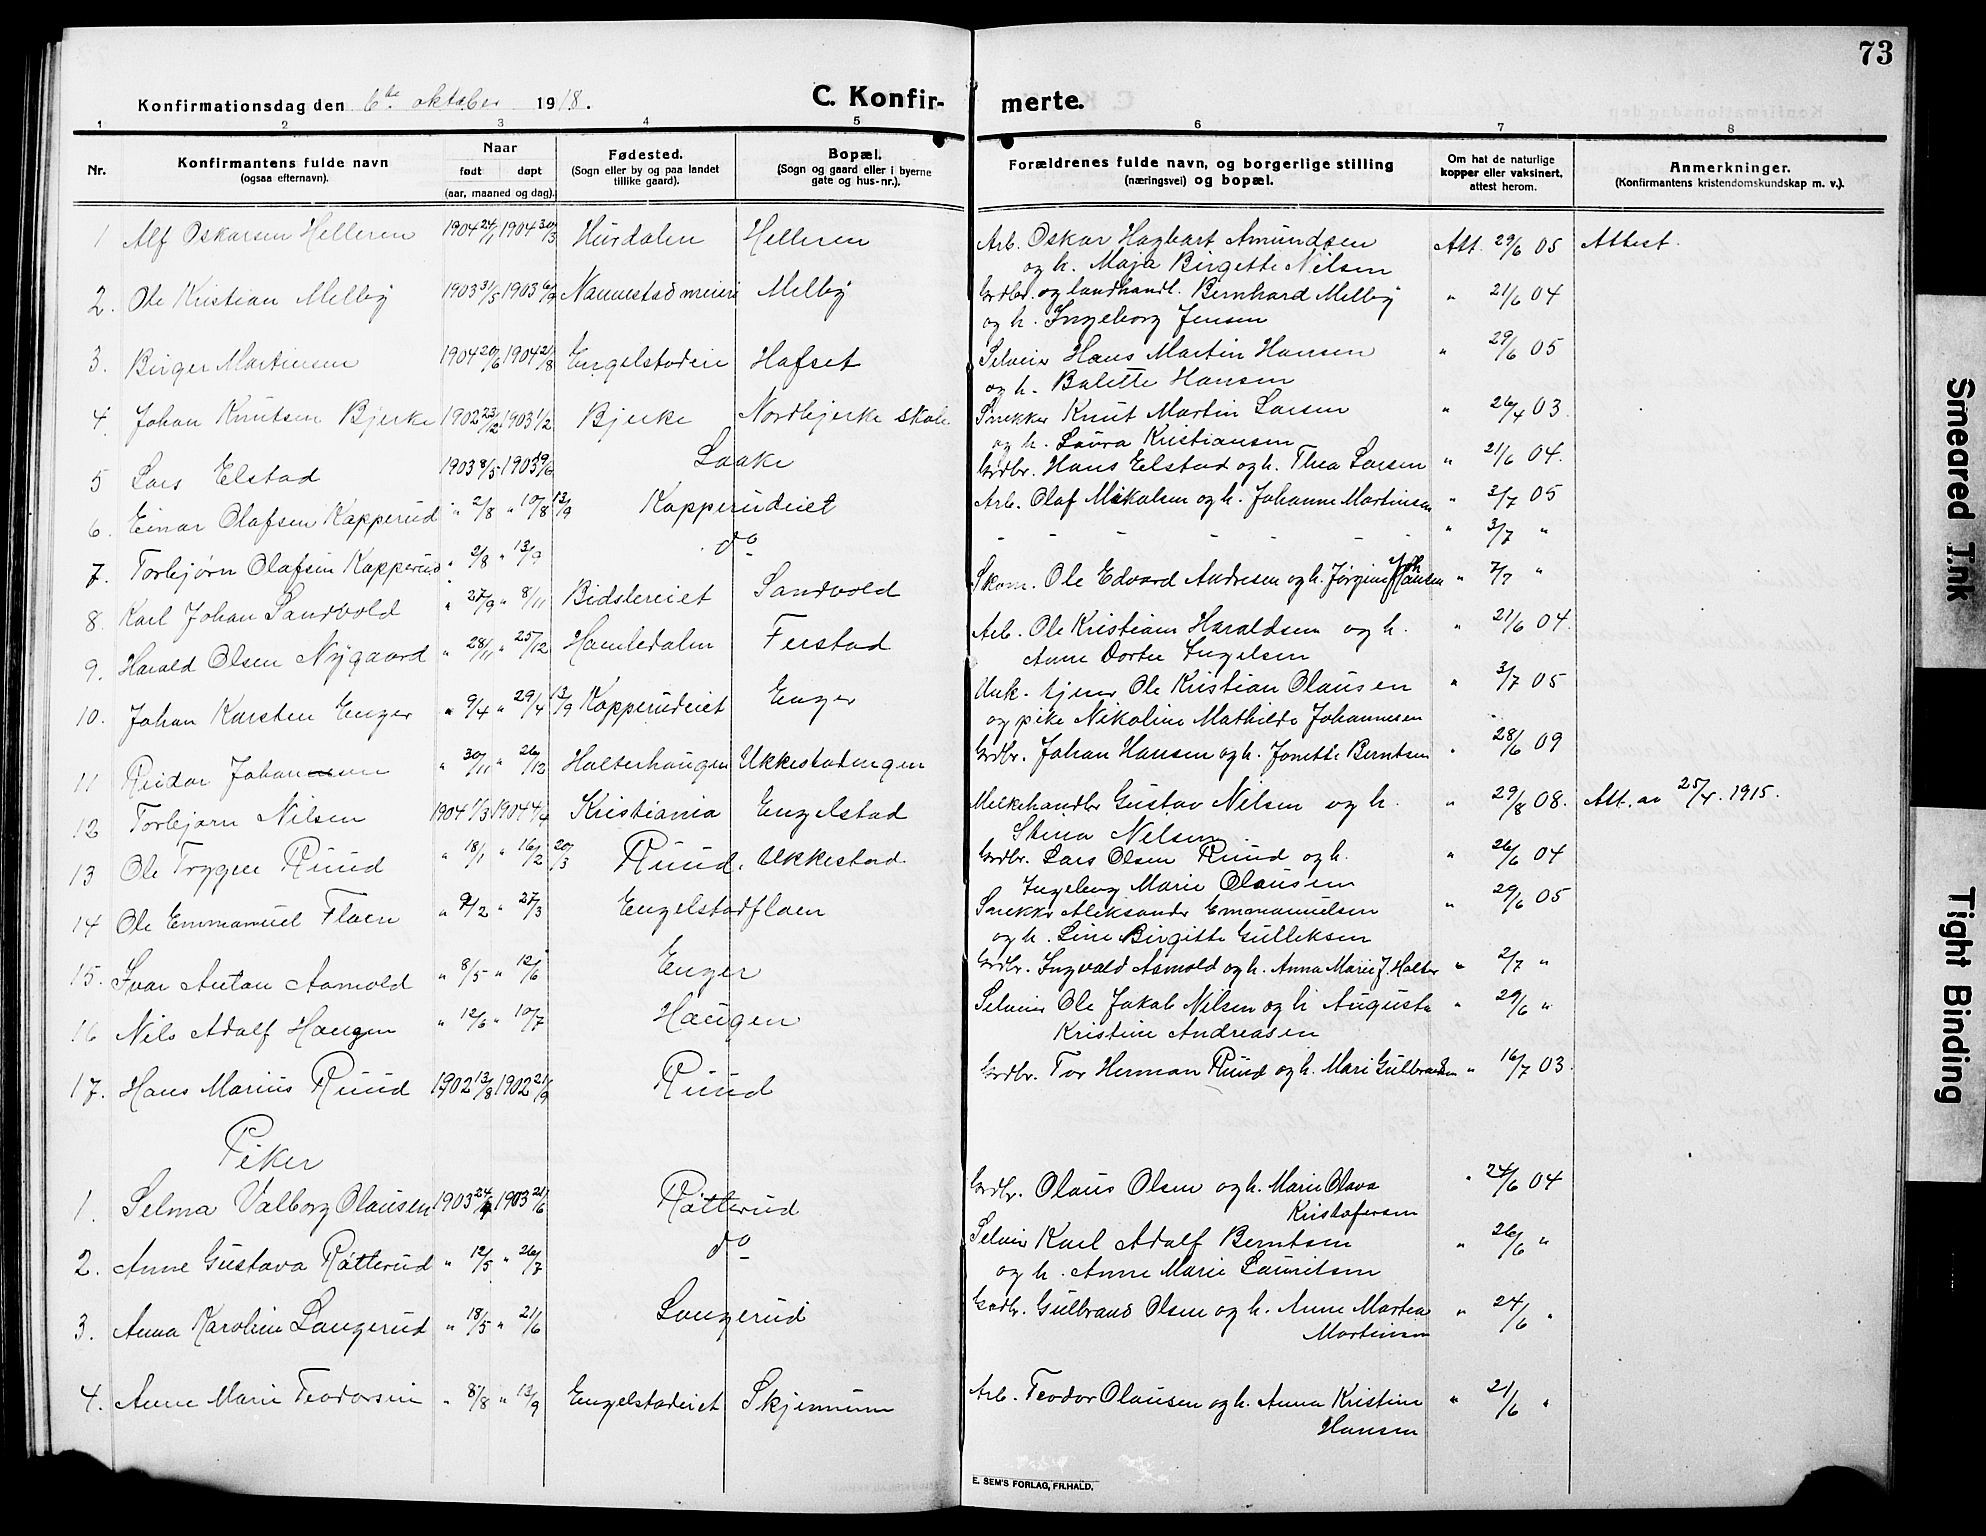 73
Konfirmationsdag den 6te oktober 1918.
C. Konfirmerte.
1 2 3 4 5 6 7 8
Nr.
Konfirmantens fulde navn
(ogsaa efternavn).
Naar
født døpt
(aar, maaned og dag).
Fødested.
(Sogn eller by og paa landet
tillike gaard).
Bopæl.
(Sogn og gaard eller i byerne
gate og hus-nr.).
Forældrenes fulde navn, og borgerlige stilling
(næringsvei) og bopæl.
Om hat de naturlige
kopper eller vaksinert,
attest herom.
Anmerkninger.
(Konfirmantens kristendomskundskap m. v.).
1 Alf Oskarsen Helleren 1904 24/1 1904 30/3 Hurdalen Helleren Arb. Oskar Hagbart Amundsen Att. 29/6 05 Attest.
og h. Maja Birgette Nilsen
2. Ole Kristian Melby 1903 31/5 1903 6/9 Nannestad meieri Melby Grdbr. og landhandl. Bernhard Melby " 21/6 04
og h. Ingeborg Jensen
3. Birger Martinsen 1904 20/6 1904 21/8 Engelstadeie Hafset Selveier Hans Martin Hansen " 29/6 05
og h. Balette Hansen
4. Johan Knutsen Bjerke 1902 23/12 1903 1/2 Bjerke Nordbjerke skole Snekker Knut Martin Larsen " 26/4 03.
og h. Laura Kristiansen
5 Lars Elstad 1903 8/5 1903 Laake Grdbr. Hans Elstad og h. Thea Larsen " 21/6 04.
6. Einar Olafsen Kapperud " 2/8 " 10/8 13/9 Kapperudeiet Arb. Olaf Mikalsen og h. Johanne Martinsen " 3/7 05
7. Torbjørn Olafsen Kapperud " 2/8 " 13/9 do - - - - - - " 3/7 "
8. Karl Johan Sandvold " 27/9 " 8/11 Bidslereiet Sandvold Skom. Ole Edvard Andresen og h. Jørgine Johansen " 7/7 "
9. Harald Olsen Nygaard " 28/11 " 25/12 Hamledalen Feistad Arb. Ole Kristian Haraldsen og h. " 21/6 04.
Anne Dortea Ingelsen
10. Johan Karsten Enger " 9/4 " 29/4 13/9 Kapperudeiet Enger Unk. tjener Ole Kristian Olausen " 3/7 05
og pike Nikoline Mathilde Johannesen
11 Reidar Johansen " 30/11 " 26/12 Holterhaugen Ukkestadengen Grdbr. Johan Hansen og h. Jonette Berntsen " 28/6 09
12 Torbjørn Nilsen 1904 1/3 1904 4/4 Kristiania Engelstad Melkehandler Gustav Nilsen og h. " 29/8 08. Att. av 25/4. 1915.
Stina Nilsen
13 Ole Trygve Ruud " 18/1 " 16/2 20/3 Ruud, Ukkestad. Grdbr. Lars Olsen Ruud og h. " 26/6 04
Ingeborg Marie Olausen
14 Ole Emmanuel Flaen " 9/2 " 27/3 Engelstadflaen Snekker Aleksander Emmanuelsen " 29/6 05
og h. Line Birgitte Gulleksen
15. Ivar Anton Asmold " 8/5 " 12/6 Enger Grdbr. Ingvald Asmold og h. Anna Marie J. Holter " 2/7 "
16 Nils Adolf Haugen " 12/6 " 10/7 Haugen Selveier Ole Jakob Nilsen og h. Augusta " 29/6 "
Kristine Andreasen
17. Hans Marius Ruud 1902 13/8 1902 21/9 Ruud Grdbr. Tor Herman Ruud og h. Mari Gulbrandsen " 16/7 03.
Piker
1. Selma Valborg Olausen 1903 24/4 1903 21/6 Røtterud Grdbr. Olaus Olsen og h. Marie Olava " 24/6 04
Kristofersen
2. Anne Gustava Røtterud " 12/5 " 26/7 do Selveier Karl Adolf Berntsen " 26/6 "
og h. Anne Marie Lauritsen
3. Anna Karoline Langerud " 18/5 " 21/6 Langerud Grdbr. Gulbrand Olsen og h. Anne Martea " 24/6 "
Martinsen
4. Anne Marie Teodorsen " 8/8 " 13/9 Engelstadeiet Skjennum Arb. Teodor Olausen og h. Anna Kristine " 21/6 "
Hansen
E. SEM'S FORLAG, FR.HALD.
Smeared Ink
Tight Binding